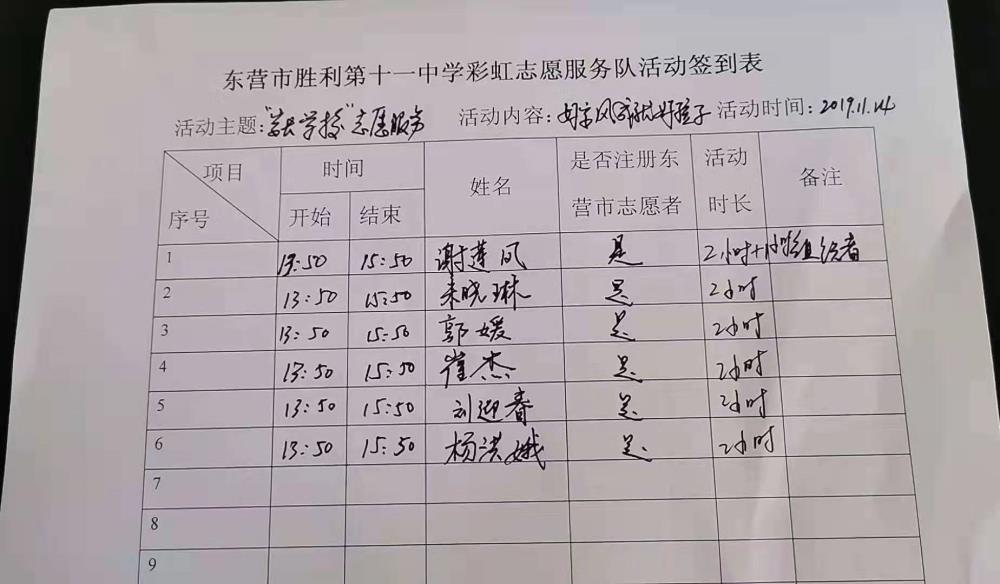 东营市胜利第十一中学彩虹志愿服务队活动签到表
活动主题:“家长学校”志愿服务 活动内容:好家风成就好孩子 活动时间:2019.11.14
项目 时间 姓名 是否注册东 活动 备注
序号 开始 结束 营市志愿者 时长
1 13:50 15:50 谢莲凤 是 2小时+1小时
2 13:50 15:50 来晓琳 是 2小时
3 13:50 15:50 郭媛 是 2小时
4 13:50 15:50 崔杰 是 2小时
5 13:50 15:50 刘迎春 是 2小时
6 13:50 15:50 杨洪娥 是 2小时
7
8
9